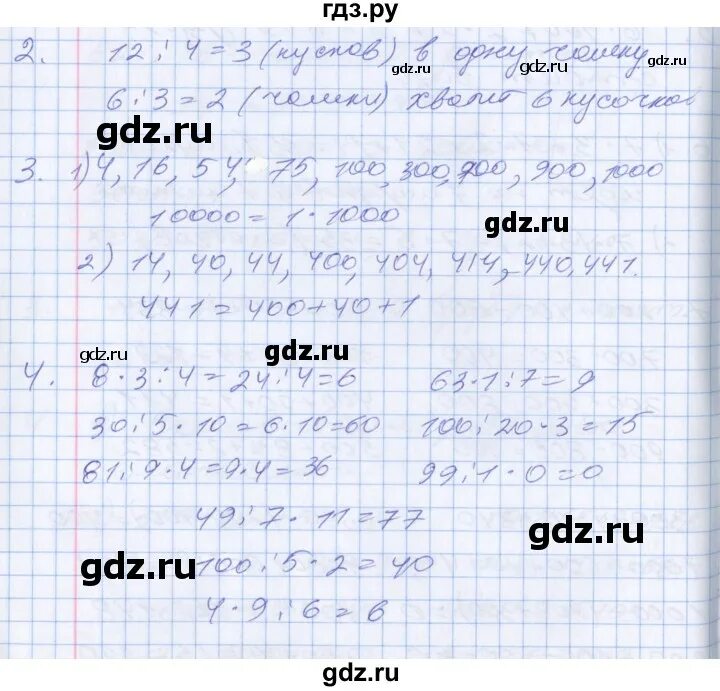 гдз.ру
2. 12:4=3 (кусков) в одну чашку gdz.ru gdz.ru
6:3=2 (чашки) хватит 6 кусочков
gdz.ru
3. 1) 4, 16, 54, 75, 100, 300, 700, 900, 1000
10000=1·1000 gdz.ru
2) 14, 40, 44, 400, 404, 414, 440, 441.
gdz.ru
441=400+40+1
gdz.ru gdz.ru
4. 8·3:4=24:4=6 63·1:7=9
30:5·10=6·10=60 100:20·3=15
81:9·4=9·4=36 99:1·0=0
49:7·11=77
gdz.ru
gdz.ru 100:5·2=40
4·9:6=6
gdz.ru